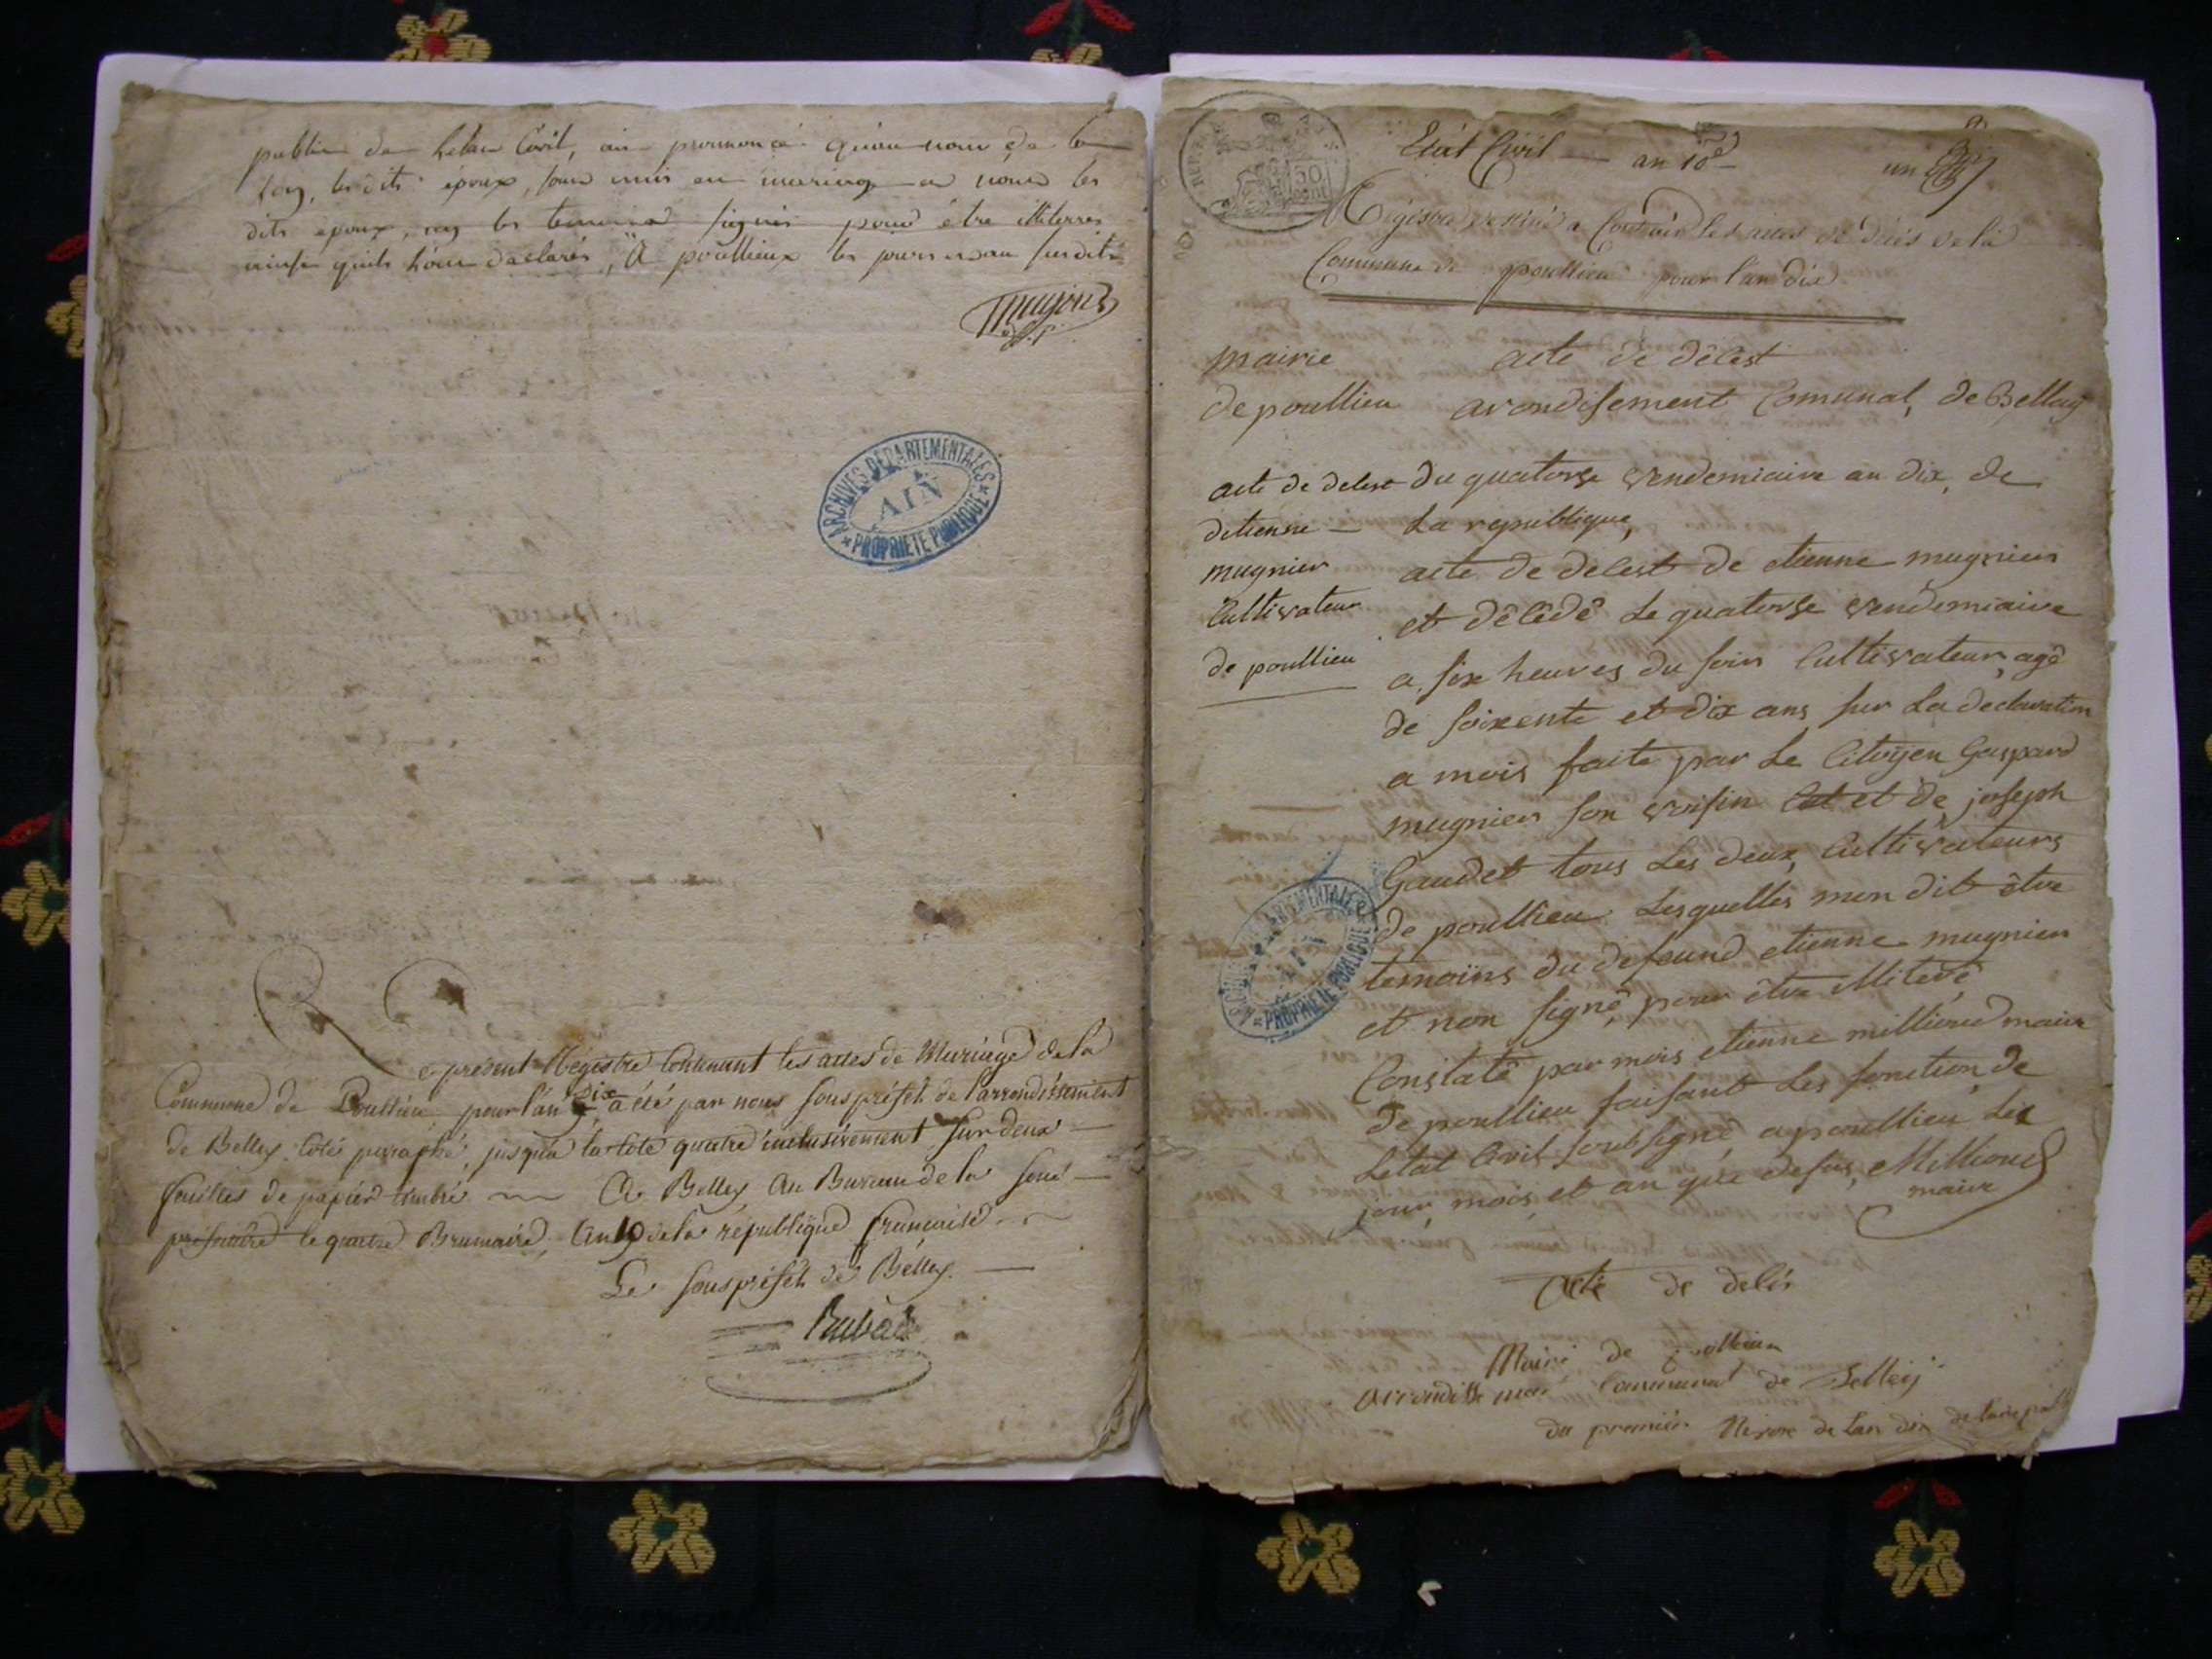 public de letat Civil, ai prononcé qu'au nom de la
loy, les dits epoux, sont unis en mariage et nond les
dits epoux, ny les temoins signés pour être illiterés
ainsi quils l'ont declarés, A poullieux les jour et an susdits
mugnier
ARCHIVES DEPARTEMENTALES
AIN
PROPRIETE PUBLIQUE
Le present Registre Contenant les actes de Mariage de la
Commune de Poullieu pour l'an dix, a été par nous sous préfet de l'arrondissement
de Belley coté paraphé, jusqu'a la cote quatre inclusivement sur deux
feuilles de papier timbré A Belley Au Bureau de la sous
préfecture le quatre Brumaire, an 10 de la république française
Le sous préfet de Belley.
Rubat
Etat Civil an 10e un
Registre destiné a Contenir les actes de décés de la
Commune de poullieu pour l'an dix
mairie acte de décest
de poullieu arondisement Comunal, de Belley
acte de decest du quatorze vendemiaire an dix, de
detienne La republique,
mugnier acte de decest de etienne mugnier
Cultivateur et décédé Le quatorse vendemiaire
de poullieu a six heures du soir Cultivateur, agé
de soixente et dix ans sur La declaration
a mois faite par Le Citoyen Gaspard
mugnier son voisin et de joseph
Gaudet tous Les deux Cultivateurs
de poullieu Lesquelles mon dit être
temoins du defeund etienne mugnier
et non signé pour être illiteré
Constaté par mois etienne milliond maire
de poullieu faisant Les fonction de
Letat Civil soubsigné a poullieu Les
jour mois et an que desus, Milliond
maire
ARCHIVES DEPARTEMENTALES
AIN
PROPRIETE PUBLIQUE
Acte de decés
Mairie de poullieu
arrondissement Communal de Belley
du premier Nivose de lan dix de la